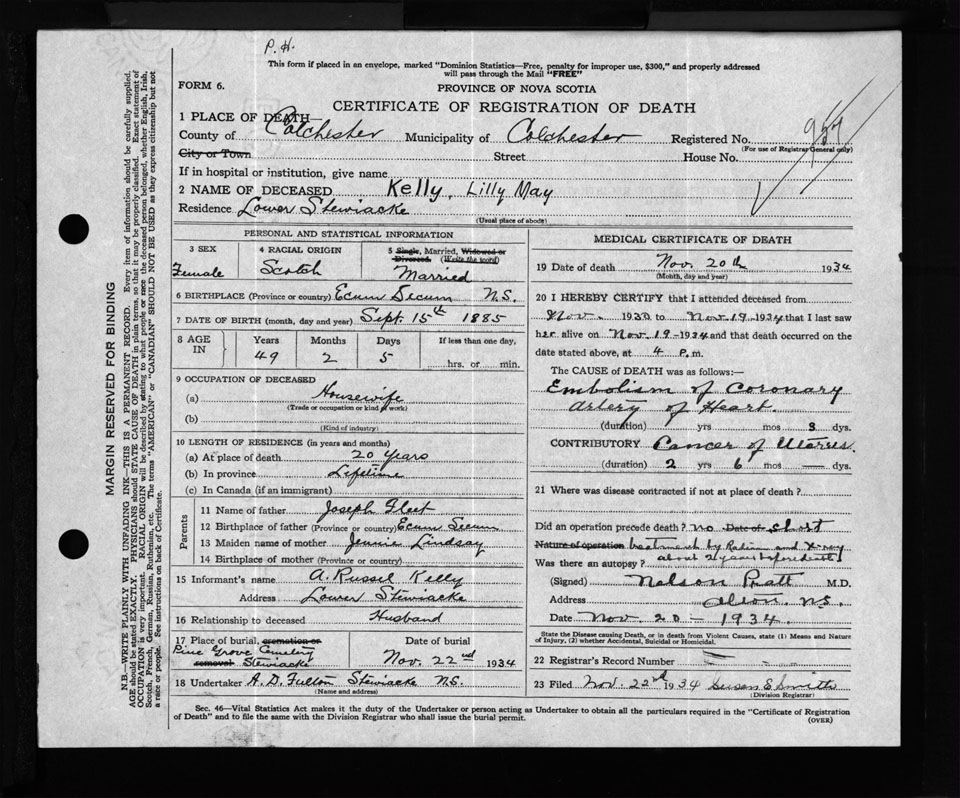 P. H.
This form if placed in an envelope, marked "Dominion Statistics—Free, penalty for improper use, $300," and properly addressed
will pass through the Mail "FREE"
FORM 6.
PROVINCE OF NOVA SCOTIA
CERTIFICATE OF REGISTRATION OF DEATH
1 PLACE OF DEATH—
County of Colchester Municipality of Colchester Registered No. 954
(For use of Registrar General only)
City or Town Street House No.
If in hospital or institution, give name
2 NAME OF DECEASED Kelly, Lilly May
Residence Lower Stewiacke
(Usual place of abode)
PERSONAL AND STATISTICAL INFORMATION
3 SEX 4 RACIAL ORIGIN 5 Single, Married, Widowed or
Divorced. (Write the word)
Female Scotch Married
6 BIRTHPLACE (Province or country) Ecum Secum N.S.
7 DATE OF BIRTH (month, day and year) Sept. 15th 1885
8 AGE IN Years Months Days If less than one day,
49 2 5 hrs. or min.
9 OCCUPATION OF DECEASED
(a) Housewife
(Trade or occupation or kind of work)
(b)
(Kind of industry)
10 LENGTH OF RESIDENCE (in years and months)
(a) At place of death 20 Years
(b) In province Lifetime
(c) In Canada (if an immigrant)
Parents
11 Name of father Joseph Fleet
12 Birthplace of father (Province or country) Ecum Secum
13 Maiden name of mother Jennie Lindsay
14 Birthplace of mother (Province or country)
15 Informant's name A. Russel Kelly
Address Lower Stewiacke
16 Relationship to deceased Husband
17 Place of burial, cremation or Date of burial
Pine Grove Cemetery
removal Stewiacke Nov. 22nd 1934
18 Undertaker A. D. Fulton Stewiacke N.S.
(Name and address)
MEDICAL CERTIFICATE OF DEATH
19 Date of death Nov. 20th 1934
(Month, day and year)
20 I HEREBY CERTIFY that I attended deceased from
Nov. 1930 to Nov. 19-1934 that I last saw
her alive on Nov. 19-1934 and that death occurred on the
date stated above, at 4 P.m.
The CAUSE of DEATH was as follows:—
Embolism of Coronary
Artery of Heart.
(duration) yrs mos 3 dys.
CONTRIBUTORY Cancer of Uterus
(duration) 2 yrs 6 mos — dys.
21 Where was disease contracted if not at place of death?
Did an operation precede death? no Date of
Nature of operation treatment by Radium and X-ray
about 2 years before death
Was there an autopsy?
(Signed) Nelson Pratt M.D.
Address N.S.
Date Nov. 20-1934.
State the Disease causing Death, or in death from Violent Causes, state (1) Means and Nature
of Injury, (2) whether Accidental, Suicidal or Homicidal.
22 Registrar's Record Number
23 Filed Nov. 22nd 1934 Susan E Smith
(Division Registrar)
Sec. 46—Vital Statistics Act makes it the duty of the Undertaker or person acting as Undertaker to obtain all the particulars required in the "Certificate of Registration
of Death" and to file the same with the Division Registrar who shall issue the burial permit.
(OVER)
MARGIN RESERVED FOR BINDING
N.B.—WRITE PLAINLY WITH UNFADING INK—THIS IS A PERMANENT RECORD. Every item of information should be carefully supplied.
AGE should be stated EXACTLY. PHYSICIANS should STATE CAUSE OF DEATH in plain terms, so that it may be properly classified. Exact statement of
OCCUPATION is very important. RACIAL ORIGIN will be described by stating to what people or race the deceased person belonged, whether English, Irish,
Scotch, French, German, Russian, Ruthenian, etc. The terms "AMERICAN" or "CANADIAN" SHOULD NOT BE USED as they express citizenship but not
a race or people. See instructions on back of Certificate.